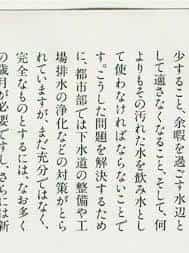 少すること、余暇を過ごす水辺と
して適さなくなること、そして、何
よりもその汚れた水を飲み水とし
て使わなければならないことで
す。こうした問題を解決するため
に、都市部では下水道の整備や工
場排水の浄化などの対策がとら
れていますが、まだ充分ではなく、
完全なものとするには、なお多く
の歳月が必要ですし、さらには新